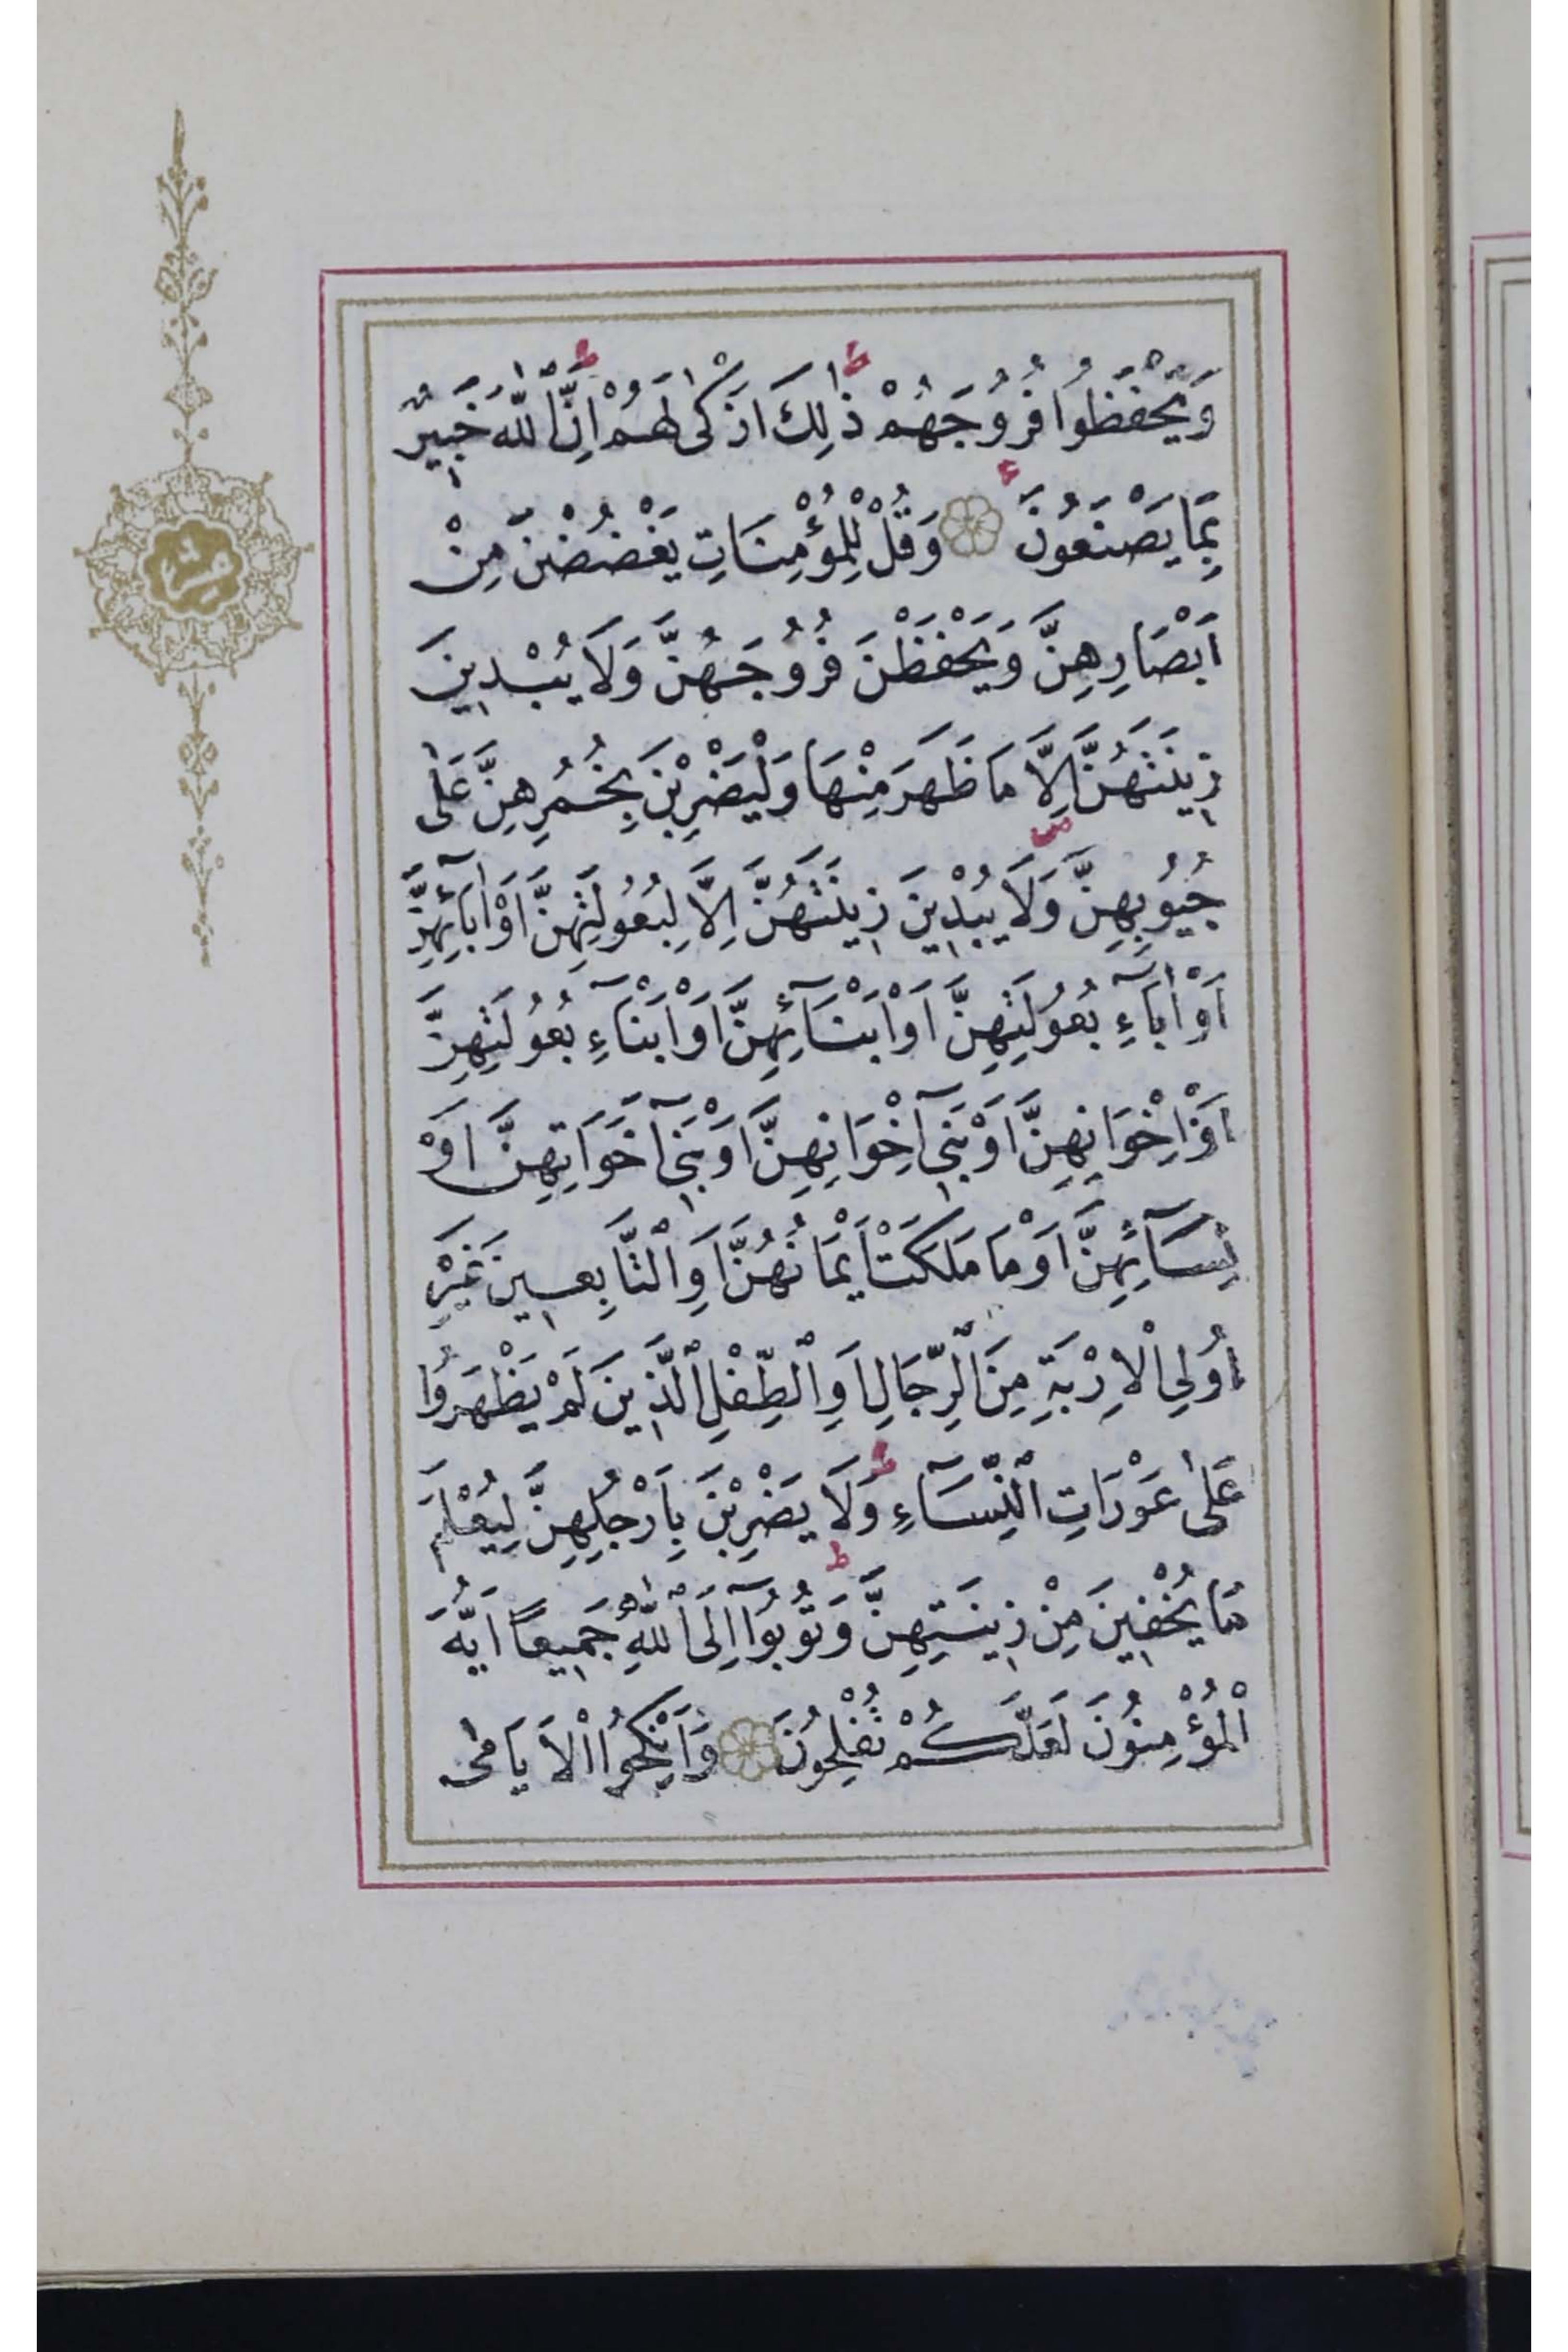 وَيَحْفَظُوا فُرُوجَهُمْ ذٰلِكَ اَزْكٰى لَهُمْ اِنَّ اللّٰهَ خَبِيرٌ
بِمَا يَصْنَعُونَ وَقُلْ لِلْمُؤْمِنَاتِ يَغْضُضْنَ مِنْ
اَبْصَارِهِنَّ وَيَحْفَظْنَ فُرُوجَهُنَّ وَلَا يُبْدِينَ
زِينَتَهُنَّ اِلَّا مَا ظَهَرَ مِنْهَا وَلْيَضْرِبْنَ بِخُمُرِهِنَّ عَلٰى
جُيُوبِهِنَّ وَلَا يُبْدِينَ زِينَتَهُنَّ اِلَّا لِبُعُولَتِهِنَّ اَوْ اٰبَآئِهِنَّ
اَوْ اٰبَآءِ بُعُولَتِهِنَّ اَوْ اَبْنَآئِهِنَّ اَوْ اَبْنَآءِ بُعُولَتِهِنَّ
اَوْ اِخْوَانِهِنَّ اَوْ بَنِىٓ اِخْوَانِهِنَّ اَوْ بَنِىٓ اَخَوَاتِهِنَّ اَوْ
نِسَآئِهِنَّ اَوْ مَا مَلَكَتْ اَيْمَانُهُنَّ اَوِ التَّابِعِينَ غَيْرِ
اُولِى الْاِرْبَةِ مِنَ الرِّجَالِ اَوِ الطِّفْلِ الَّذِينَ لَمْ يَظْهَرُوا
عَلٰى عَوْرَاتِ النِّسَآءِ وَلَا يَضْرِبْنَ بِاَرْجُلِهِنَّ لِيُعْلَمَ
مَا يُخْفِينَ مِنْ زِينَتِهِنَّ وَتُوبُوٓا اِلَى اللّٰهِ جَمِيعًا اَيُّهَ
الْمُؤْمِنُونَ لَعَلَّكُمْ تُفْلِحُونَ وَاَنْكِحُوا الْاَيَامٰى